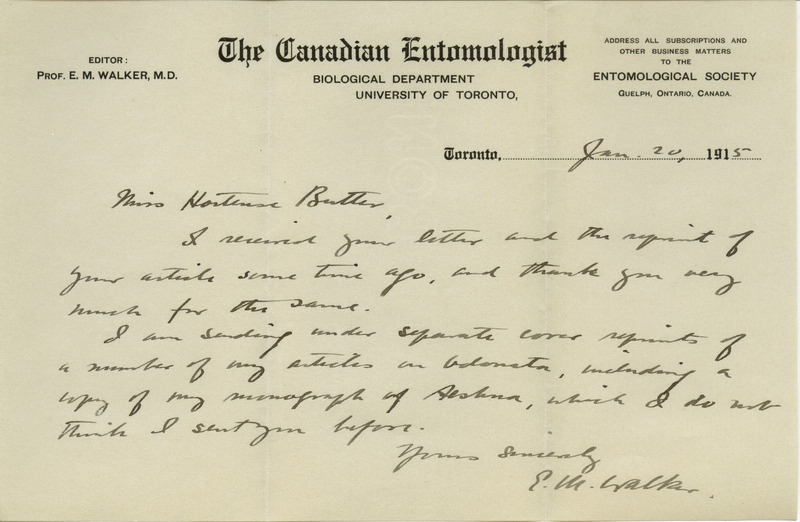 The Canadian Entomologist
EDITOR:
PROF. E. M. WALKER, M.D.
BIOLOGICAL DEPARTMENT
UNIVERSITY OF TORONTO,
ADDRESS ALL SUBSCRIPTIONS AND
OTHER BUSINESS MATTERS
TO THE
ENTOMOLOGICAL SOCIETY
GUELPH, ONTARIO, CANADA.
Toronto, Jan. 20, 1915
Miss Hortense Butler,
I received your letter and the reprint of
your article some time ago, and thank you very
much for the same.
I am sending under separate cover reprints of
a number of my articles on Odonata, including a
copy of my monograph of Aeshna, which I do not
think I sent you before.
Yours sincerely
E. M. Walker.